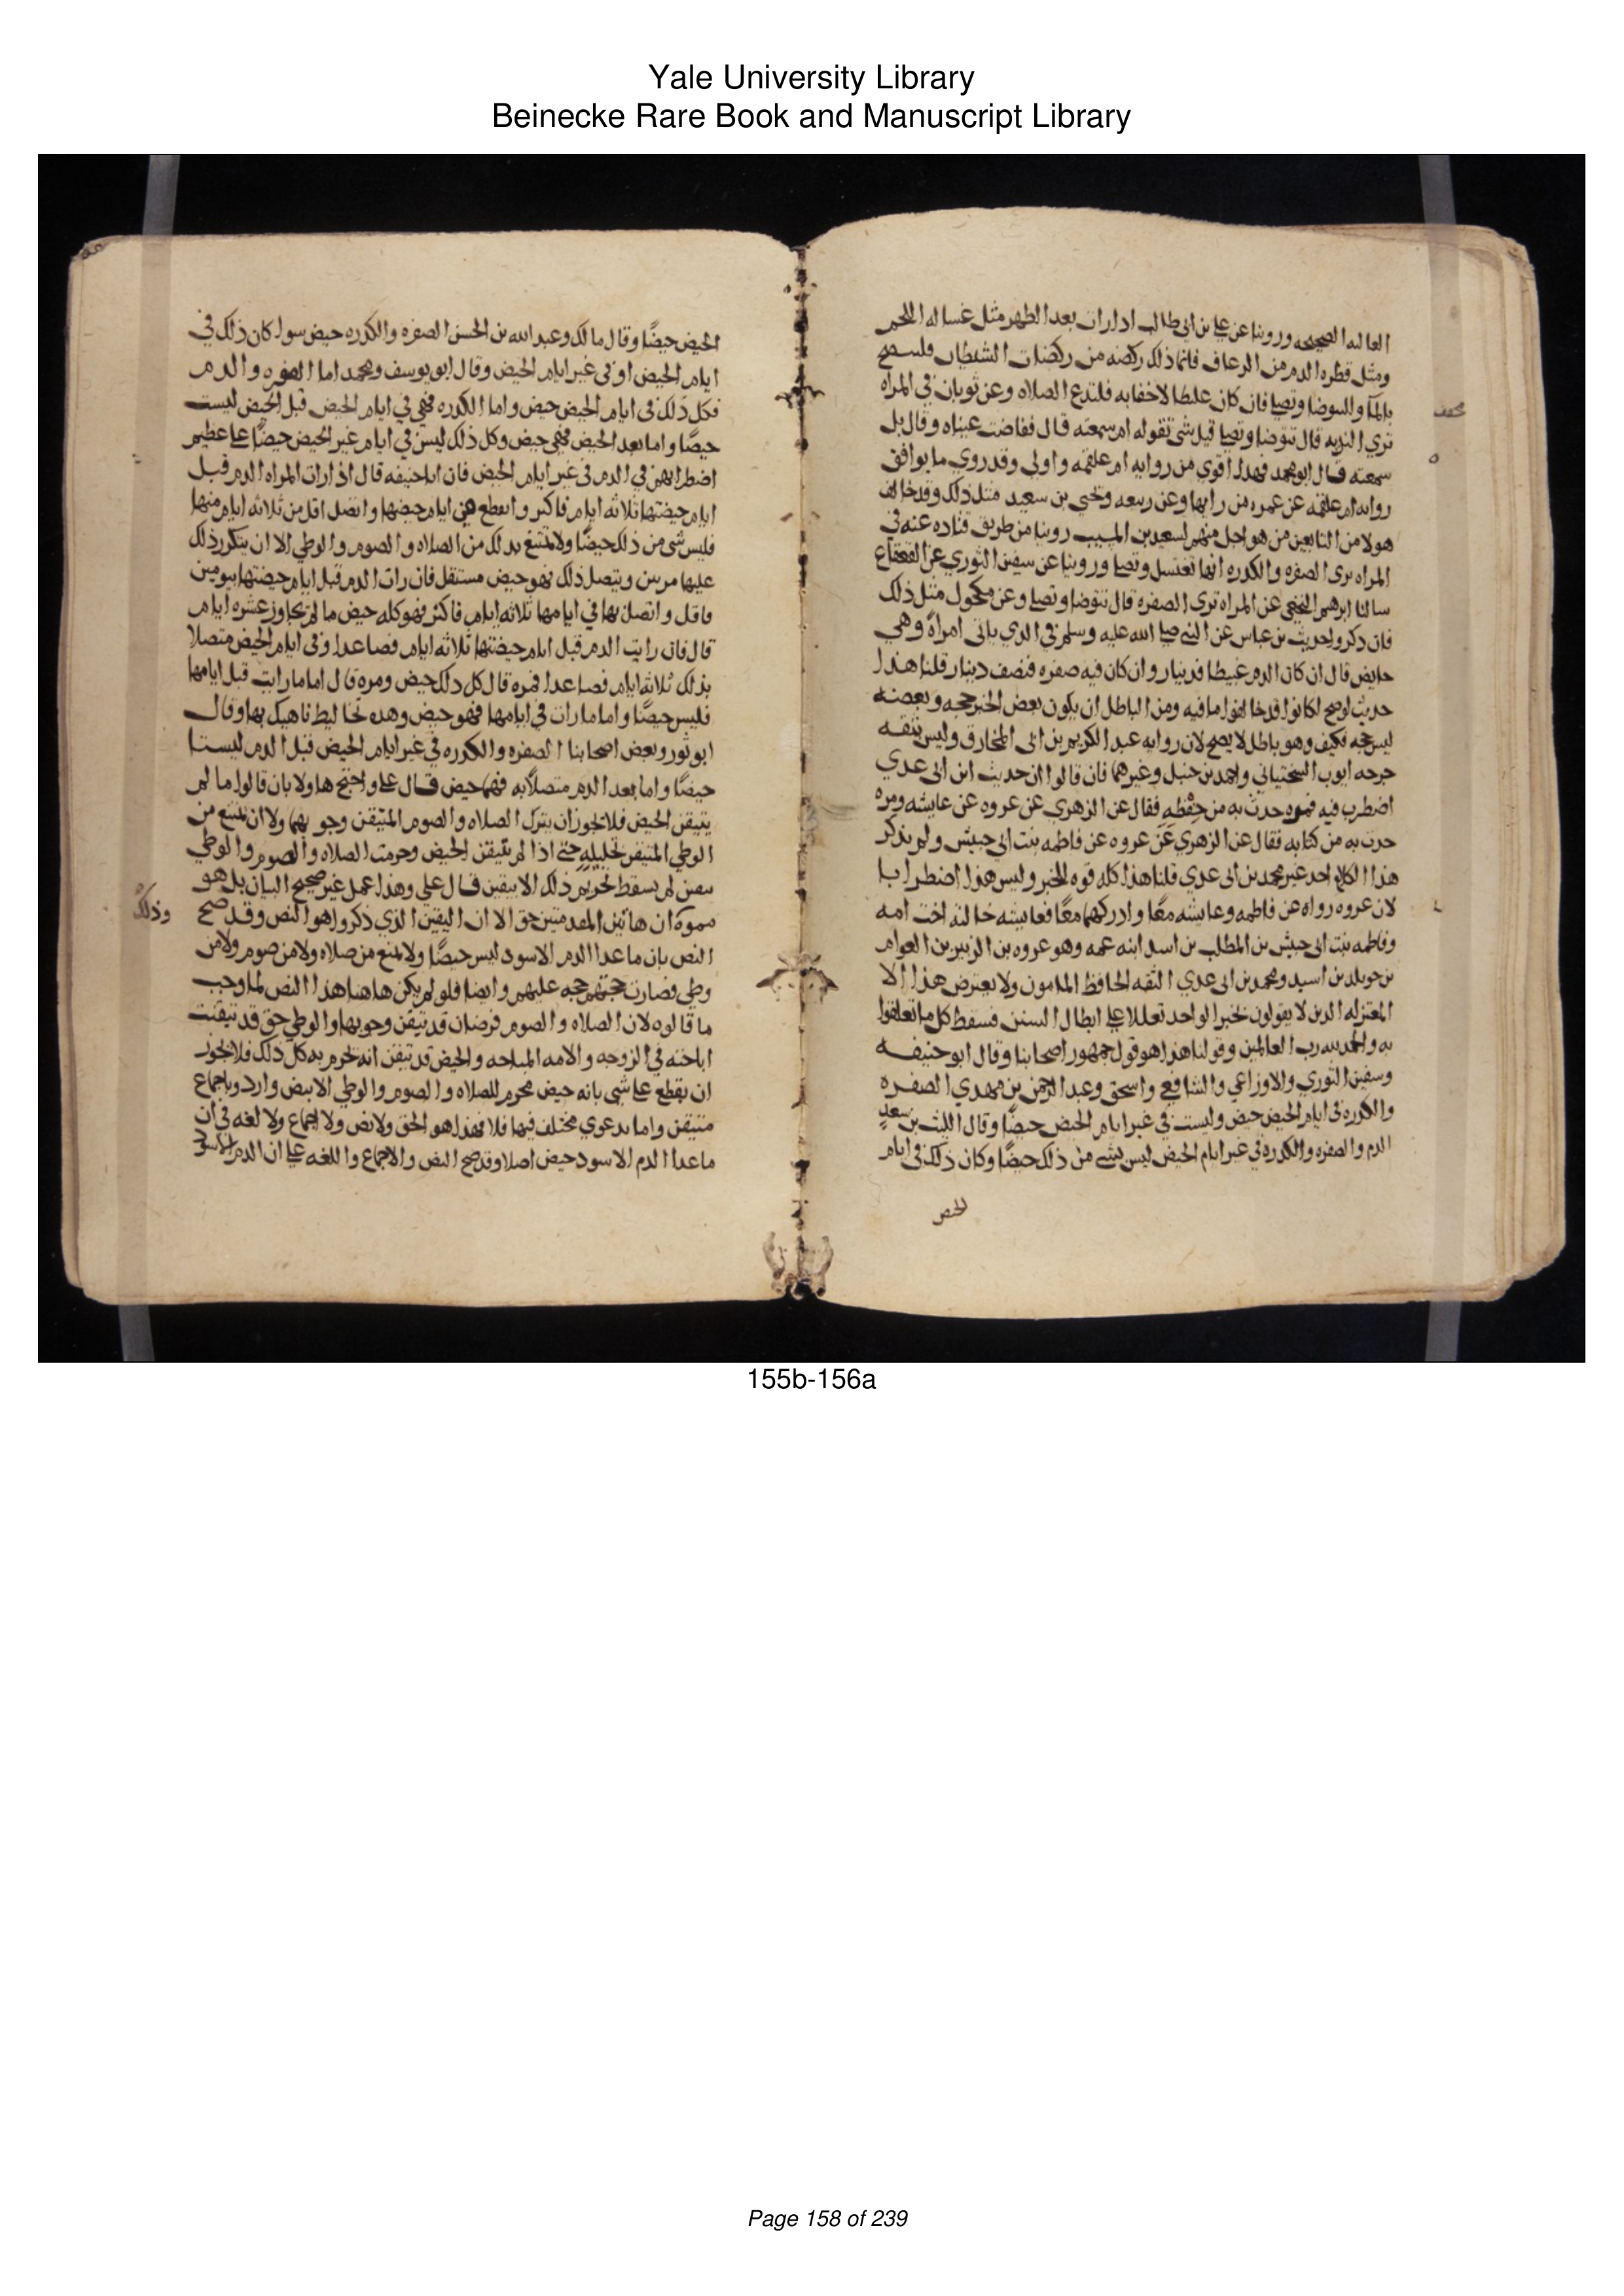 Yale University Library
Beinecke Rare Book and Manuscript Library
العاليه الصحيحه وروينا عن علي بن ابي طالب اذا رات بعد الطهر مثل غساله اللحم
ومثل قطره الدم من الرعاف فانما ذلك ركضه من ركضات الشيطان فلتنضح
بالمآ ولتتوضا وتصلي فان كان عبيطا لا خفا به فلتدع الصلاه وعن ثوبان في المراه
تري التريه قال تتوضا وتصلي قيل شي تقوله ام سمعته قال ففاضت عيناه وقال بل
سمعته قال ابو محمد فهذا اقوي من روايه ام علقمه واولي وقد روي ما يوافق
روايه ام علقمه عن عمره من رايها وعن ربيعه ويحيي بن سعيد مثل ذلك وقد خالف
هولا من التابعين من هو اجل منهم لسعيد بن المسيب روينا من طريق قتاده عنه في
المراه تري الصفره والكدره انها تغتسل وتصلي وروينا عن سفين الثوري عن القعقاع
سالنا ابرهيم النخعي عن المراه تري الصفره قال تتوضا وتصلي وعن مكحول مثل ذلك
فان ذكروا حديث بن عباس عن النبي صلي الله عليه وسلم في الذي ياتي امراة وهي
حايض قال ان كان الدم عبيطا فدينار وان كان فيه صفره فنصف دينار قلنا هذا
حديث لو صح لكانوا قد خالفوا ما فيه ومن الباطل ان يكون بعض الخبر حجه وبعضه
ليس حجه فكيف وهو باطل لا يصح لان روايه عبد الكريم بن ابي المخارق وليس بثقه
جرحه ايوب السختياني واحمد بن حنبل وغيرهما فان قالوا ان حديث ابن ابي عدي
اضطرب فيه فمره حدث به من حفظه فقال عن الزهري عن عروه عن عايشه ومره
حدث به من كتابه فقال عن الزهري عن عروه عن فاطمه بنت ابي حبيش ولم يذكر
هذا الكلام احد غير محمد بن ابي عدي قلنا هذا كله قوه للخبر وليس هذا اضطرابا
لان عروه رواه عن فاطمه وعايشه معا وادركهما معا فعايشه خالته اخت امه
وفاطمه بنت ابي حبيش بن المطلب بن اسد ابنه عمه وهو عروه بن الزبير بن العوام
بن خويلد بن اسد ومحمد بن ابي عدي الثقه الحافظ المامون ولا يعترض هذا الا
المعتزله الذين لا يقولون بخبر الواحد تعللا علي ابطال السنن فسقط كل ما تعلقوا
به والحمد لله رب العالمين وقولنا هذا هو قول جمهور اصحابنا وقال ابو حنيفه
وسفين الثوري والاوزاعي والشافعي واسحق وعبد الرحمن بن مهدي الصفره
والكدره في ايام الحيض حيض وليست في غير ايام الحيض حيضا وقال الليث بن سعد
الدم والصفره والكدره في غير ايام الحيض ليس شي من ذلك حيضا وكان ذلك في ايام
الحيض
الحيض حيضا وقال مالك وعبد الله بن الحسن الصفره والكدره حيض سوا كان ذلك في
ايام الحيض او في غير ايام الحيض وقال ابو يوسف ومحمد اما الصفره والدم
فكل ذلك في ايام الحيض حيض واما الكدره فهي في ايام الحيض قبل الحيض ليست
حيضا واما بعد الحيض فهي حيض وكل ذلك ليس في ايام غير الحيض حيضا علي عظيم
اضطرابهم في الدم في غير ايام الحيض فان ابا حنيفه قال اذا رات المراه الدم قبل
ايام حيضتها ثلاثه ايام فاكثر وانقطع في ايام حيضها واتصل اقل من ثلاثه ايام منها
فليس شي من ذلك حيضا ولا تمتنع بذلك من الصلاه والصوم والوطي الا ان يتكرر ذلك
عليها مرتين ويتصل ذلك فهو حيض مستقل فان رات الدم قبل ايام حيضتها بيومين
فاقل واتصل بها في ايامها ثلاثه ايام فاكثر فهو كله حيض ما لم يجاوز عشره ايام
قال فان رات الدم قبل ايام حيضتها ثلاثه ايام فصاعدا وفي ايام الحيض متصلا
بذلك ثلاثه ايام فصاعدا فمره قال كل ذلك حيض ومره قال اما ما رات قبل ايامها
فليس حيضا واما ما رات في ايامها فهو حيض وهذه تخاليط ناهيك بها وقال
ابو ثور وبعض اصحابنا الصفره والكدره في غير ايام الحيض قبل الدم ليستا
حيضا واما بعد الدم متصلا به فهما حيض قال علي واحتج هاولا بان قالوا ما لم
يتيقن الحيض فلا يجوز ان يترك الصلاه والصوم المتيقن وجوبهما ولا ان تمتنع من
الوطي المتيقن تحليله حتي اذا لم تتيقن الحيض وحرمت الصلاه والصوم والوطي
بيقين لم يسقط تحريم ذلك الا بيقين قال علي وهذا عمل غير صحيح البيان بل هو
مموه ان هاتين المقدمتين حق الا ان اليقين الذي ذكروا هو النص وقد صح
وذلك
النص بان ما عدا الدم الاسود ليس حيضا ولا تمنع من صلاه ولا من صوم ولا من
وطي فصارت حجتهم حجه عليهم وايضا فلو لم يكن هاهنا هذا النص لما وجب
ما قالوه لان الصلاه والصوم فرضان قد تيقن وجوبها والوطي حق قد تيقنت
اباحته في الزوجه والامه المباحه والحيض قد تيقن انه تحرم به كل ذلك فلا يجوز
ان يقطع علي شي بانه حيض محرم للصلاه والصوم والوطي الا بنص وارد وباجماع
متيقن واما بدعوي مختلف فيها فلا فهذا هو الحق ولا نص ولا اجماع ولا لغه في ان
ما عدا الدم الاسود حيض اصلا وقد صح النص والاجماع واللغه علي ان الدم الاسود
155b-156a
Page 158 of 239